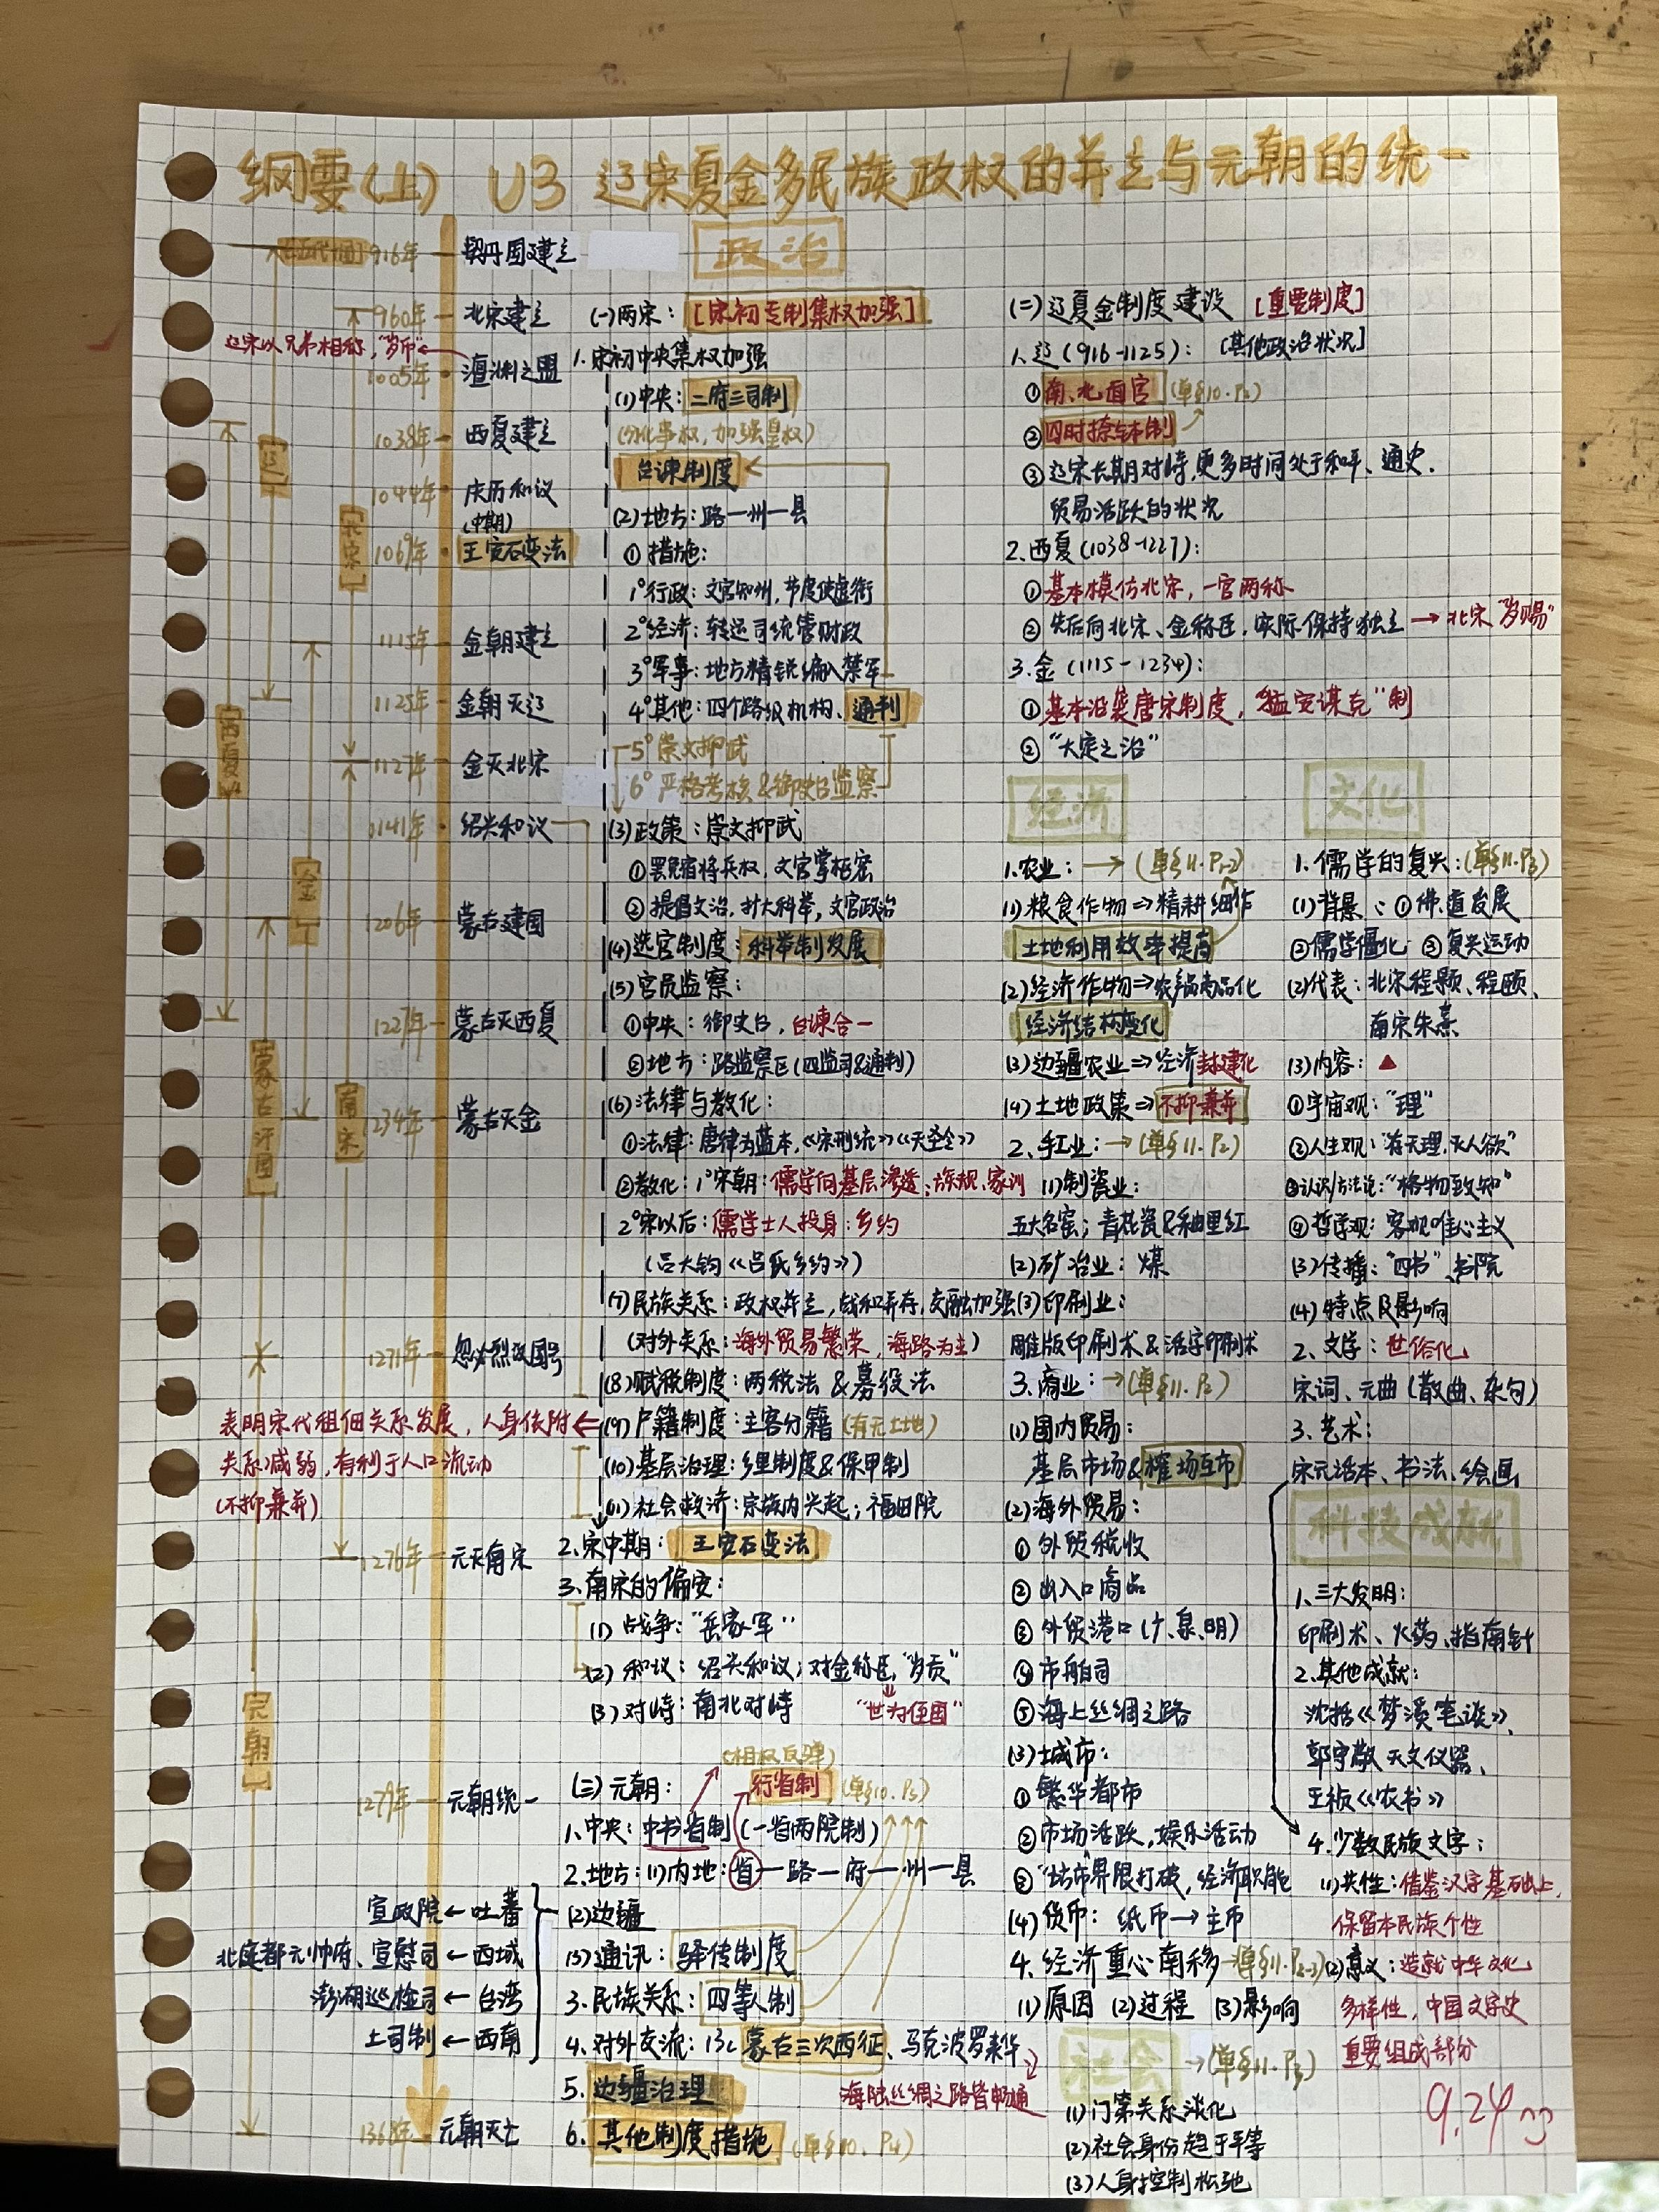 纲要(上) U3 辽宋夏金多民族政权的并立与元朝的统一
916年 契丹国建立
960年 北宋建立
辽宋以兄弟相称,"岁币"
1005年 澶渊之盟
1038年 西夏建立
1044年 庆历和议
(中期)
1069年 王安石变法
1115年 金朝建立
1125年 金朝灭辽
1127年 金灭北宋
1141年 绍兴和议
1206年 蒙古建国
1227年 蒙古灭西夏
1234年 蒙古灭金
1271年 忽必烈改国号
表明宋代租佃关系发展,人身依附
关系减弱,有利于人口流动
(不抑兼并)
1276年 元灭南宋
1279年 元朝统一
1368年 元朝灭亡
[辽]
[北宋]
[西夏]
[金]
[蒙古汗国]
[南宋]
[元朝]
政治
(一)两宋:[宋初专制集权加强]
1.宋初中央集权加强
(1)中央:二府三司制
(分化事权,加强皇权)
台谏制度
(2)地方:路一州一县
①措施:
1°行政:文官知州,节度使虚衔
2°经济:转运司统管财政
3°军事:地方精锐编入禁军
4°其他:四个路级机构、通判
5°崇文抑武
6°严格考核&御史台监察
(3)政策:崇文抑武
①罢免宿将兵权,文官掌枢密
②提倡文治,扩大科举,文官政治
(4)选官制度:科举制发展
(5)官员监察:
①中央:御史台,台谏合一
②地方:路监察区(四监司&通判)
(6)法律与教化:
①法律:唐律为蓝本,《宋刑统》《天圣令》
②教化:1°宋朝:儒学向基层渗透:族规、家训
2°宋以后:儒学士人投身:乡约
(吕大钧《吕氏乡约》)
(7)民族关系:政权并立,战和并存,交融加强
(对外关系:海外贸易繁荣,海路为主)
(8)赋税制度:两税法&募役法
(9)户籍制度:主客分籍(有无土地)
(10)基层治理:乡里制度&保甲制
(11)社会救济:宗族内兴起;福田院
2.宋中期:王安石变法
3.南宋的偏安:
(1)战争:"岳家军"
(2)和议:绍兴和议;对金称臣,"岁贡"
(3)对峙:南北对峙 "世为臣国"
(相权反弹)
(三)元朝: 行省制 (单§10.P3)
1.中央:中书省制(一省两院制)
2.地方:(1)内地:省一路一府一州一县
(2)边疆
宣政院←吐蕃
北庭都元帅府、宣慰司←西域
澎湖巡检司←台湾
土司制←西南
(3)通讯:驿传制度
3.民族关系:四等人制
4.对外交流:13c 蒙古三次西征、马克波罗来华
海陆丝绸之路皆畅通
5.边疆治理
6.其他制度措施 (单§10.P4)
(二)辽夏金制度建设 [重要制度]
1.辽(916-1125): [其他政治状况]
①南、北面官 (单§10.P2)
②四时捺钵制
③辽宋长期对峙,更多时间处于和平、通史.
贸易活跃的状况
2.西夏(1038-1227):
①基本模仿北宋,一官两称
②先后向北宋、金称臣,实际保持独立→北宋"岁赐"
3.金(1115-1234):
①基本沿袭唐宋制度,"猛安谋克"制
②"大定之治"
经济
1.农业:→(单§11.P1-2)
(1)粮食作物⇒精耕细作
土地利用效率提高
(2)经济作物⇒农产品商品化
经济结构变化
(3)边疆农业⇒经济封建化
(4)土地政策⇒不抑兼并
2.手工业:→(单§11.P2)
(1)制瓷业:
五大名窑;青花瓷&釉里红
(2)矿冶业:煤
(3)印刷业:
雕版印刷术&活字印刷术
3.商业:→(单§11.P2)
(1)国内贸易:
基层市场&榷场互市
(2)海外贸易:
①外贸税收
②出入口商品
③外贸港口(广、泉、明)
④市舶司
⑤海上丝绸之路
(3)城市:
①繁华都市
②市场活跃,娱乐活动
③"坊市"界限打破,经济职能
(4)货币:纸币→主币
4.经济重心南移→(单§11.P2-3)
(1)原因 (2)过程 (3)影响
社会 →(单§11.P3)
(1)门第关系淡化
(2)社会身份趋于平等
(3)人身控制松弛
文化
1.儒学的复兴:(单§11.P3)
(1)背景:①佛、道发展
②儒学僵化 ③复兴运动
(2)代表:北宋程颢、程颐、
南宋朱熹
(3)内容:▲
①宇宙观:"理"
②人生观:"存天理,灭人欲"
③认识/方法论:"格物致知"
④哲学观:客观唯心主义
(3)传播:"四书"、书院
(4)特点及影响
2.文字:世俗化
宋词、元曲(散曲、杂剧)
3.艺术:
宋元话本、书法、绘画
科技成就
1.三大发明:
印刷术、火药、指南针
2.其他成就:
沈括《梦溪笔谈》、
郭守敬 天文仪器、
王祯《农书》
4.少数民族文字:
(1)共性:借鉴汉字基础上,
保留本民族个性
(2)意义:造就中华文化
多样性,中国文字史
重要组成部分
9.24